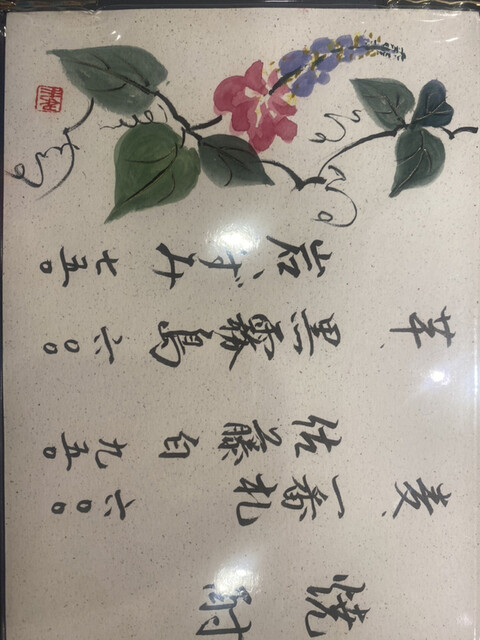 焼酎
麦
一番札 六〇〇
佐藤 白 九五〇
芋
黒霧島 六〇〇
岩いずみ 七五〇